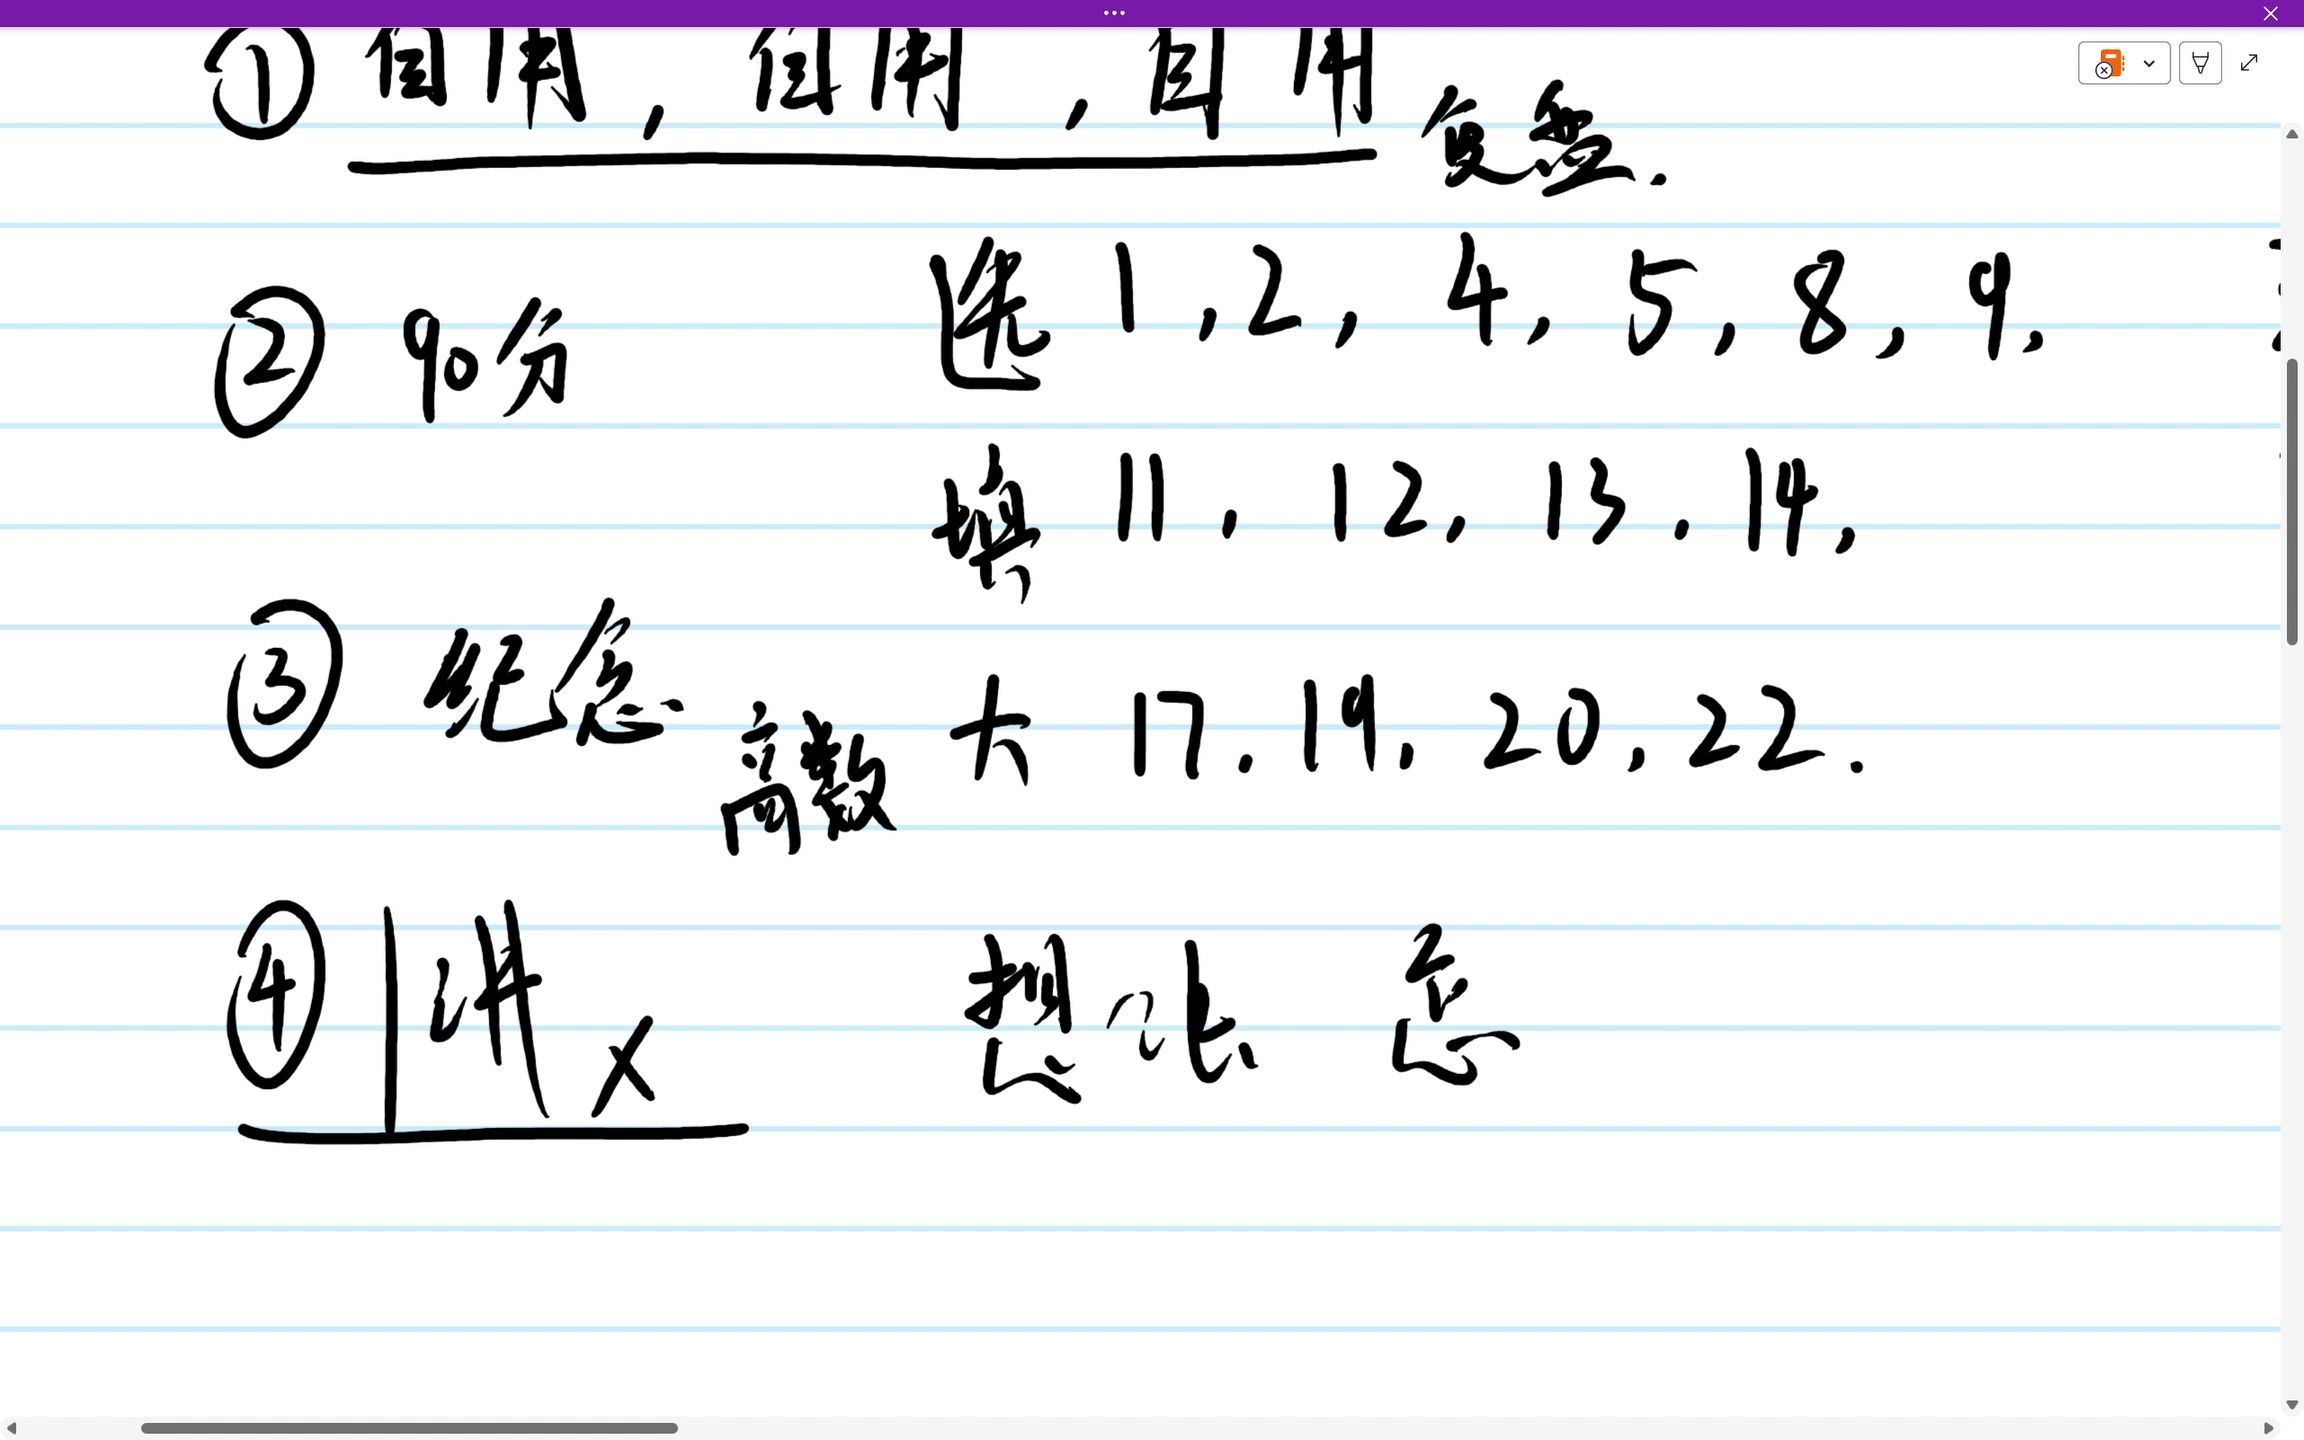 ① 自用，自用，自用 复盘.
② 90分 选 1,2,4,5,8,9,
填 11,12,13.14,
③ 纪念. 高数 大 17.19,20,22.
④ 讲 x 想 怎